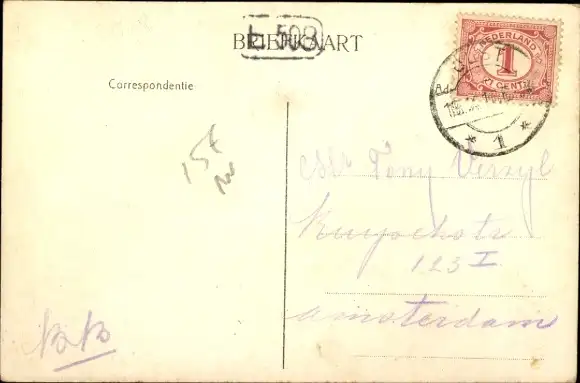 BRIEFKAART
L 508
NEDERLAND
1
CENT
1
Correspondentie
15t
Tony Verzyl
123 I
Amsterdam